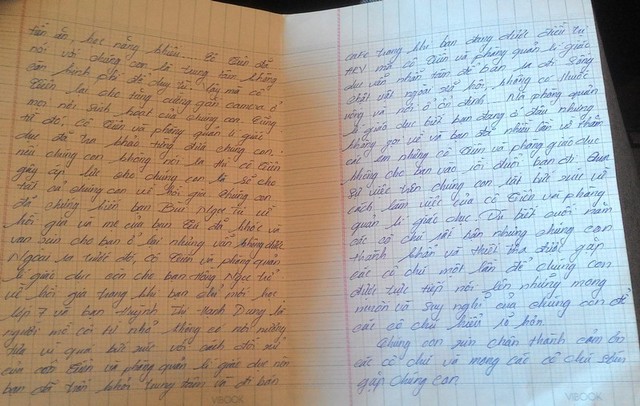 tốn ăn, học nặng nhiều. Cô Tiên đã
nói với chúng con là trung tâm không
còn kinh phí để duy trì. Vậy mà cô
Tiên lại cho tăng cường gắn camera ở
mọi nơi sinh hoạt của chúng con. Cũng
từ đó, cô Tiên và phòng quản lí giáo
dục đã tra khảo từng đứa chúng con.
nếu chúng con không nói ra thì cô Tiên
gây áp lực cho chúng con là sẽ cho
tất cả chúng con về hồi gia. Chúng con
đã chứng kiến bạn Bùi Ngọc Tú về
hồi gia và mẹ của bạn Tú đã khóc và
van xin cho bạn ở lại nhưng vẫn không được
Ngoài ra trước đó, cô Tiên và phòng quản
lí giáo dục còn cho bạn Hồng Ngọc Tử
về hồi gia trong khi bạn chỉ mới học
lớp 7 và bạn Huỳnh Thị Hạnh Dung là
người mồ côi từ nhỏ không có nơi nương
tựa vì quá bức xúc với cách đối xử
của cô Tiên và phòng quản lí giáo dục nên
bạn đã trốn khỏi trung tâm và đi bán
trong khi bạn đang được điều trị
HIV mà cô Tiên và phòng quản lí giáo
dục vẫn nhẫn tâm để bạn ra đi sống
chật vật ngoài xã hội, không có thuốc
uống và nơi ở ổn định... Mà phòng quản
lí giáo dục biết bạn đang ở đâu nhưng
không gọi về và bạn đã nhiều lần về thăm
các em nhưng cô Tiên và phòng giáo dục
không cho bạn vào rồi đuổi bạn đi. Qua
sự việc trên chúng con rất bức xúc về
cách làm việc của cô Tiên và phòng
quản lí giáo dục. Dù biết cuối năm
các cô chú rất bận nhưng chúng con
thành khẩn và thiết tha được gặp
các cô chú một lần để chúng con
được trực tiếp nói lên những mong
muốn và suy nghĩ của chúng con để
các cô chú hiểu rõ hơn.
Chúng con xin chân thành cảm ơn
các cô chú và mong các cô chú sớm
gặp chúng con.
VIBOOK
VIBOOK